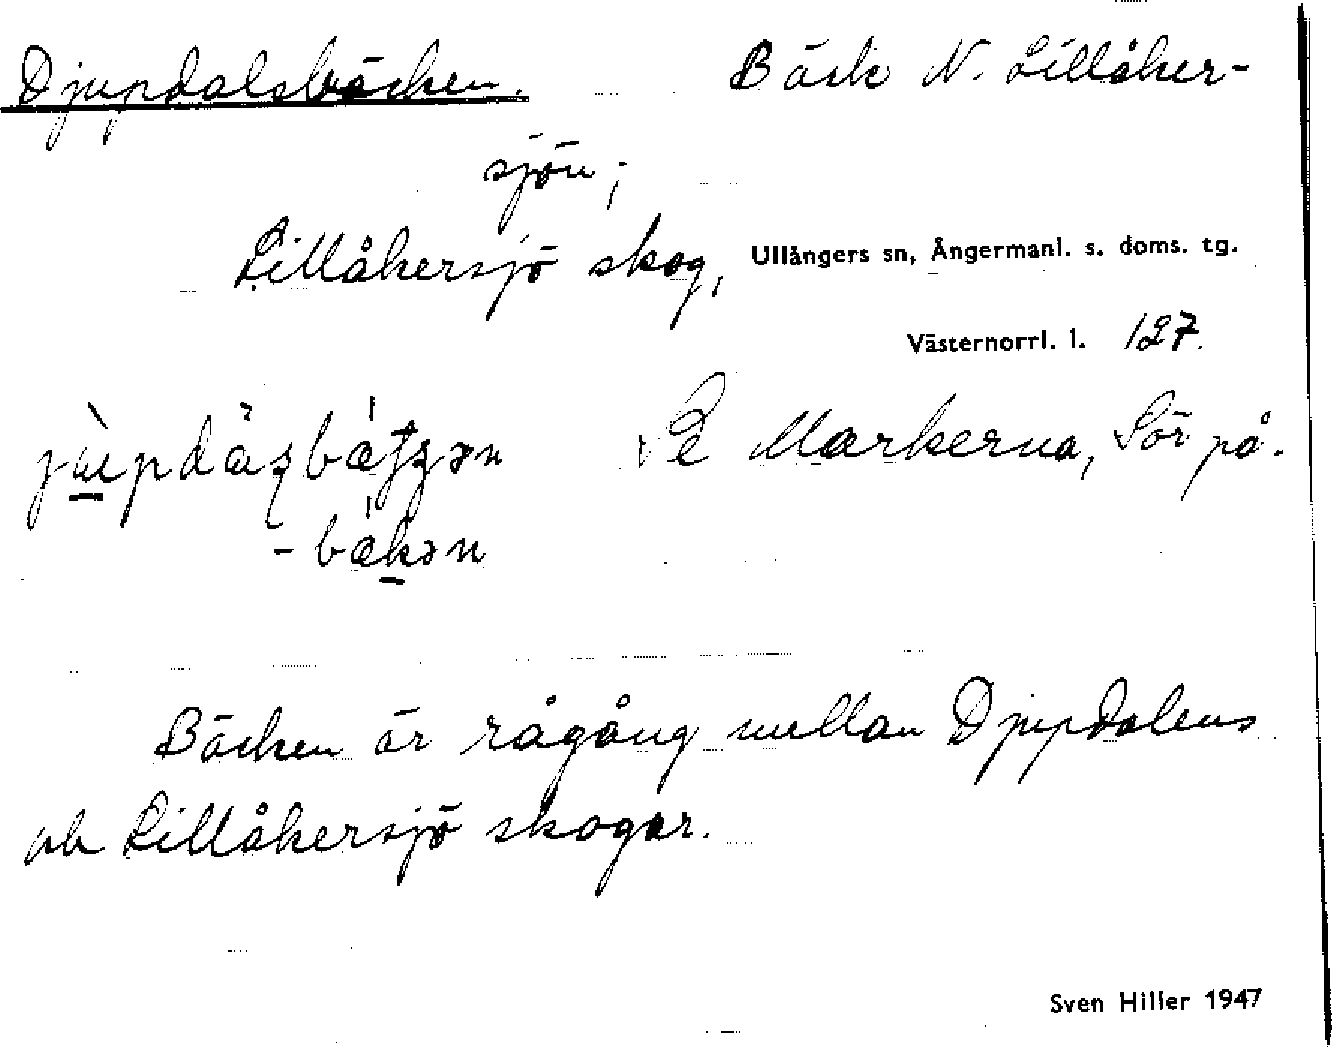 Djupdalsbäcken. Bäck N. Lillåker-
sjön;
Lillåkersjö skog, Ullångers sn, Ångermanl. s. doms. tg.
Västernorrl. l. 127.
Markerna, Sör på.
Bäcken är rågång mellan Djupdalens
och Lillåkersjö skogar.
Sven Hiller 1947